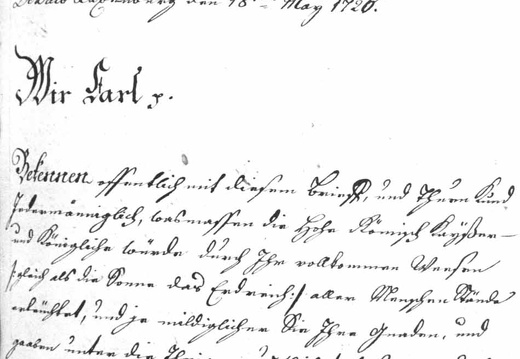 Laxenburg den 18ten May 1720.
Wir Carl p.
Bekennen offentlich mit diesem Brieff, und Thuen Kund
Jedermänniglich, wasmassen die Hohe Römisch Kayßer-
und Königliche würde durch Ihr vollkommen Weesen
/:gleich als die Sonne das Erdreich:/ aller Menschen Stände
erleüchtet, und je mildiglicher Sie Ihre Gnaden, und
gaaben unter die